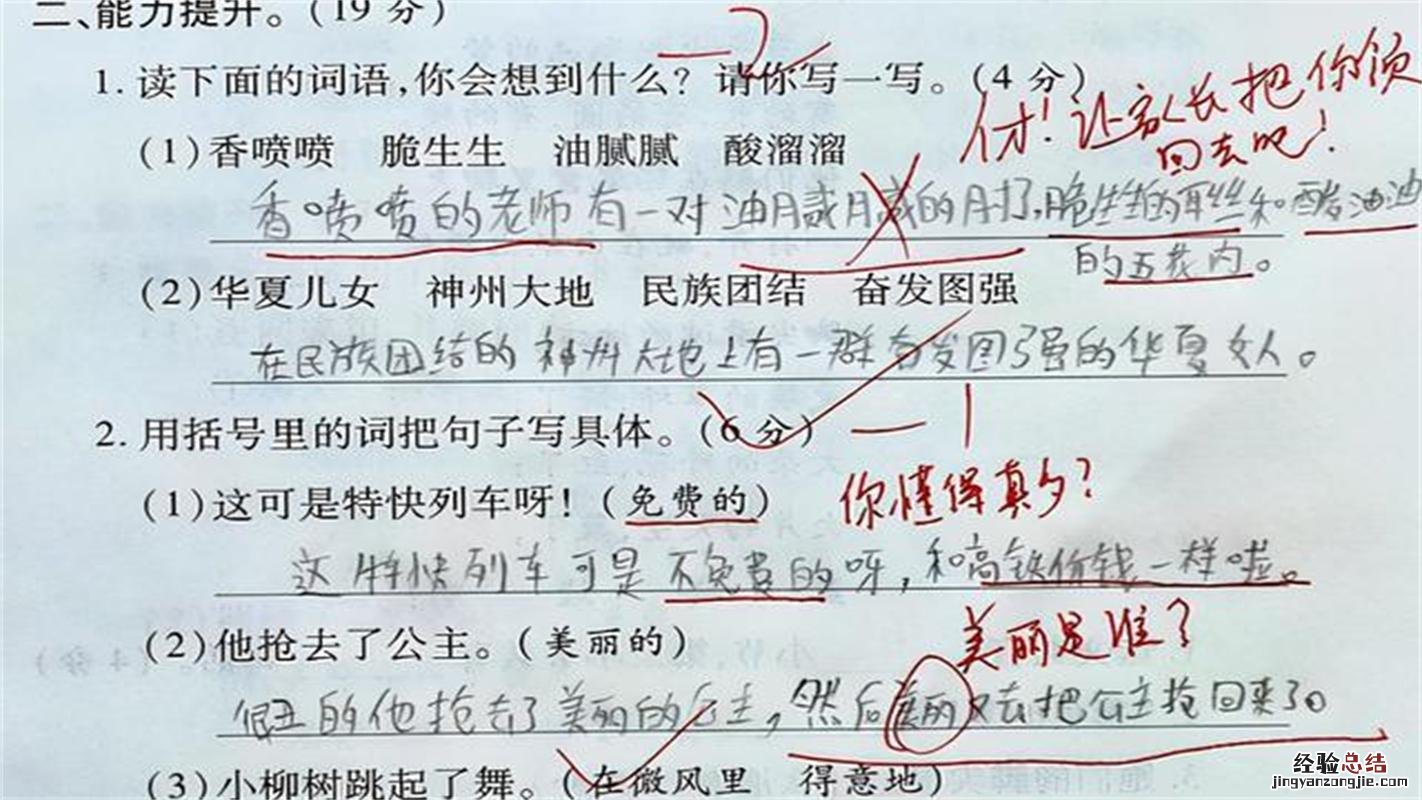 二、能力提升。(19 分)
1. 读下面的词语,你会想到什么? 请你写一写。(4 分)
(1)香喷喷 脆生生 油腻腻 酸溜溜
亻才! 让家长把你领回去吧!
香喷喷的老师有一对油腻腻的肘子,脆生生的耳丝和酸油油
的五花肉。
(2)华夏儿女 神州大地 民族团结 奋发图强
在民族团结的神州大地上有一群奋发图强的华夏女人。
2. 用括号里的词把句子写具体。(6 分) —1
(1)这可是特快列车呀! (免费的)
你懂得真多?
这特快列车可是不免费的呀,和高铁价钱一样啦。
(2)他抢去了公主。(美丽的)
美丽是谁?
很丑的他抢去了美丽的公主,然后美丽又去把公主抢回来了。
(3)小柳树跳起了舞。(在微风里 得意地)
经验总结
jingyanzongjie.com